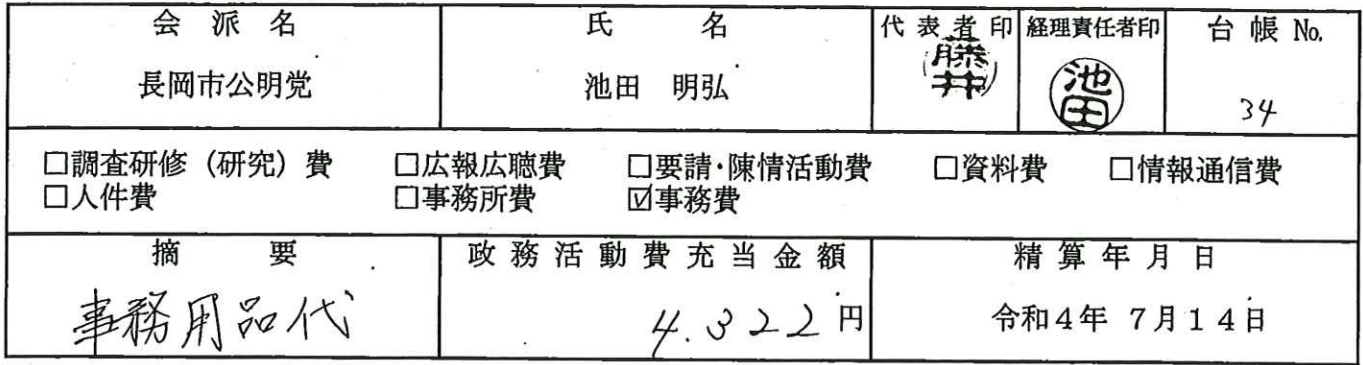 会派名 氏名 代表者印 経理責任者印 台帳 No.
長岡市公明党 池田 明弘 藤井 池田 34
□調査研修（研究）費 □広報広聴費 □要請・陳情活動費 □資料費 □情報通信費
□人件費 □事務所費 ☑事務費
摘要 政務活動費充当金額 精算年月日
事務用品代 4.322円 令和4年 7月14日